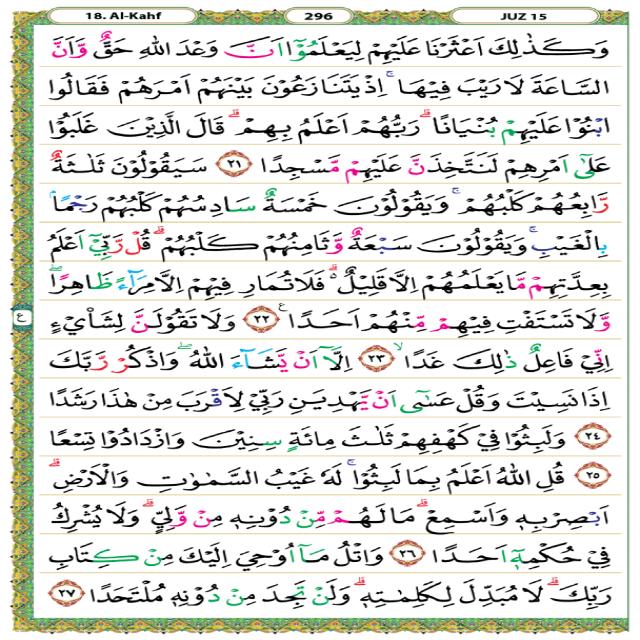 18. Al-Kahf 296 JUZ 15
وَكَذٰلِكَ اَعْثَرْنَا عَلَيْهِمْ لِيَعْلَمُوْٓا اَنَّ وَعْدَ اللّٰهِ حَقٌّ وَّاَنَّ
السَّاعَةَ لَا رَيْبَ فِيْهَاۚ اِذْ يَتَنَازَعُوْنَ بَيْنَهُمْ اَمْرَهُمْ فَقَالُوا
ابْنُوْا عَلَيْهِمْ بُنْيَانًاۗ رَبُّهُمْ اَعْلَمُ بِهِمْۗ قَالَ الَّذِيْنَ غَلَبُوْا
عَلٰٓى اَمْرِهِمْ لَنَتَّخِذَنَّ عَلَيْهِمْ مَّسْجِدًا ٢١ سَيَقُوْلُوْنَ ثَلٰثَةٌ
رَّابِعُهُمْ كَلْبُهُمْۚ وَيَقُوْلُوْنَ خَمْسَةٌ سَادِسُهُمْ كَلْبُهُمْ رَجْمًاۢ
بِالْغَيْبِۚ وَيَقُوْلُوْنَ سَبْعَةٌ وَّثَامِنُهُمْ كَلْبُهُمْۗ قُلْ رَّبِّيْٓ اَعْلَمُ
بِعِدَّتِهِمْ مَّا يَعْلَمُهُمْ اِلَّا قَلِيْلٌ ەۗ فَلَا تُمَارِ فِيْهِمْ اِلَّا مِرَاۤءً ظَاهِرًاۖ
وَّلَا تَسْتَفْتِ فِيْهِمْ مِّنْهُمْ اَحَدًا ࣖ ٢٢ وَلَا تَقُوْلَنَّ لِشَا۟يْءٍ
اِنِّيْ فَاعِلٌ ذٰلِكَ غَدًاۙ ٢٣ اِلَّآ اَنْ يَّشَاۤءَ اللّٰهُۖ وَاذْكُرْ رَّبَّكَ
اِذَا نَسِيْتَ وَقُلْ عَسٰٓى اَنْ يَّهْدِيَنِ رَبِّيْ لِاَقْرَبَ مِنْ هٰذَا رَشَدًا
٢٤ وَلَبِثُوْا فِيْ كَهْفِهِمْ ثَلٰثَ مِائَةٍ سِنِيْنَ وَازْدَادُوْا تِسْعًا
٢٥ قُلِ اللّٰهُ اَعْلَمُ بِمَا لَبِثُوْاۚ لَهٗ غَيْبُ السَّمٰوٰتِ وَالْاَرْضِۗ
اَبْصِرْ بِهٖ وَاَسْمِعْۗ مَا لَهُمْ مِّنْ دُوْنِهٖ مِنْ وَّلِيٍّۗ وَلَا يُشْرِكُ
فِيْ حُكْمِهٖٓ اَحَدًا ٢٦ وَاتْلُ مَآ اُوْحِيَ اِلَيْكَ مِنْ كِتَابِ
رَبِّكَۗ لَا مُبَدِّلَ لِكَلِمٰتِهٖۗ وَلَنْ تَجِدَ مِنْ دُوْنِهٖ مُلْتَحَدًا ٢٧
ع